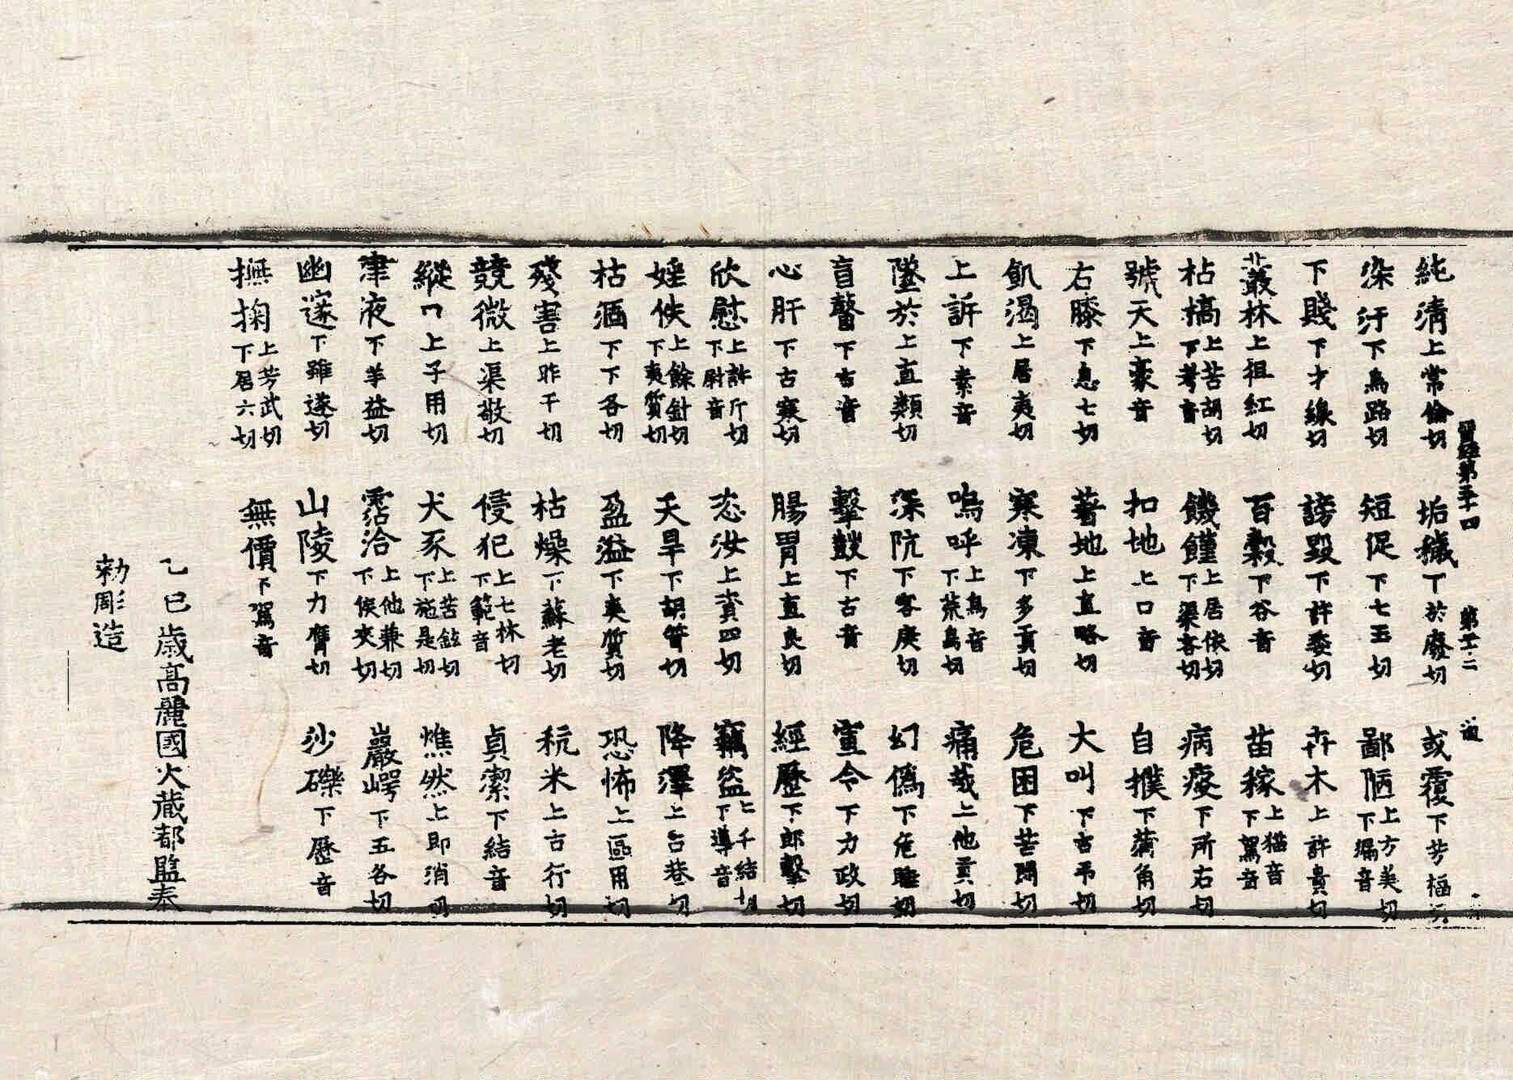 純清上常倫切 垢穢下於廢切 或覆下芳福切
染汙下烏路切 短促下七玉切 鄙陋上方美切下漏音
下賤下才線切 謗毀下許委切 卉木上許貴切
叢林上徂紅切 百穀下谷音 苗稼上猫音下駕音
枯槁上苦胡切下考音 饑饉上居依切下渠吝切 病瘦下所右切
號天上豪音 扣地上口音 自撲下蒲角切
右膝下息七切 著地上直略切 大叫下古弔切
飢渴上居夷切 寒凍下多貢切 危困下苦悶切
上訴下素音 嗚呼上烏音下荒烏切 痛哉上他貢切
墜於上直類切 深阬下客庚切 幻僞下危睡切
盲瞽下古音 擊鼓下古音 宣令下力政切
心肝下古寒切 腸胃上直良切 經歷下郎擊切
欣慰上許斤切下尉音 恣汝上資四切 竊盜上千結切下導音
婬佚上餘針切下夷質切 天旱下胡笴切 降澤上古巷切
枯涸下下各切 盈溢下夷質切 恐怖上區用切
殘害上昨干切 枯燥下蘇老切 秔米上古行切
兢微上渠敬切 侵犯上七林切下範音 貞潔下結音
縱口上子用切 犬豕上苦鉉切下施是切 燋然上即消切
津液下羊益切 霑洽上他兼切下侯夾切 巖崿下五各切
幽邃下雖遂切 山陵下力膺切 沙礫下歷音
撫掬上芳武切下居六切 無價下駕音
乙巳歲高麗國大藏都監奉
勅彫造